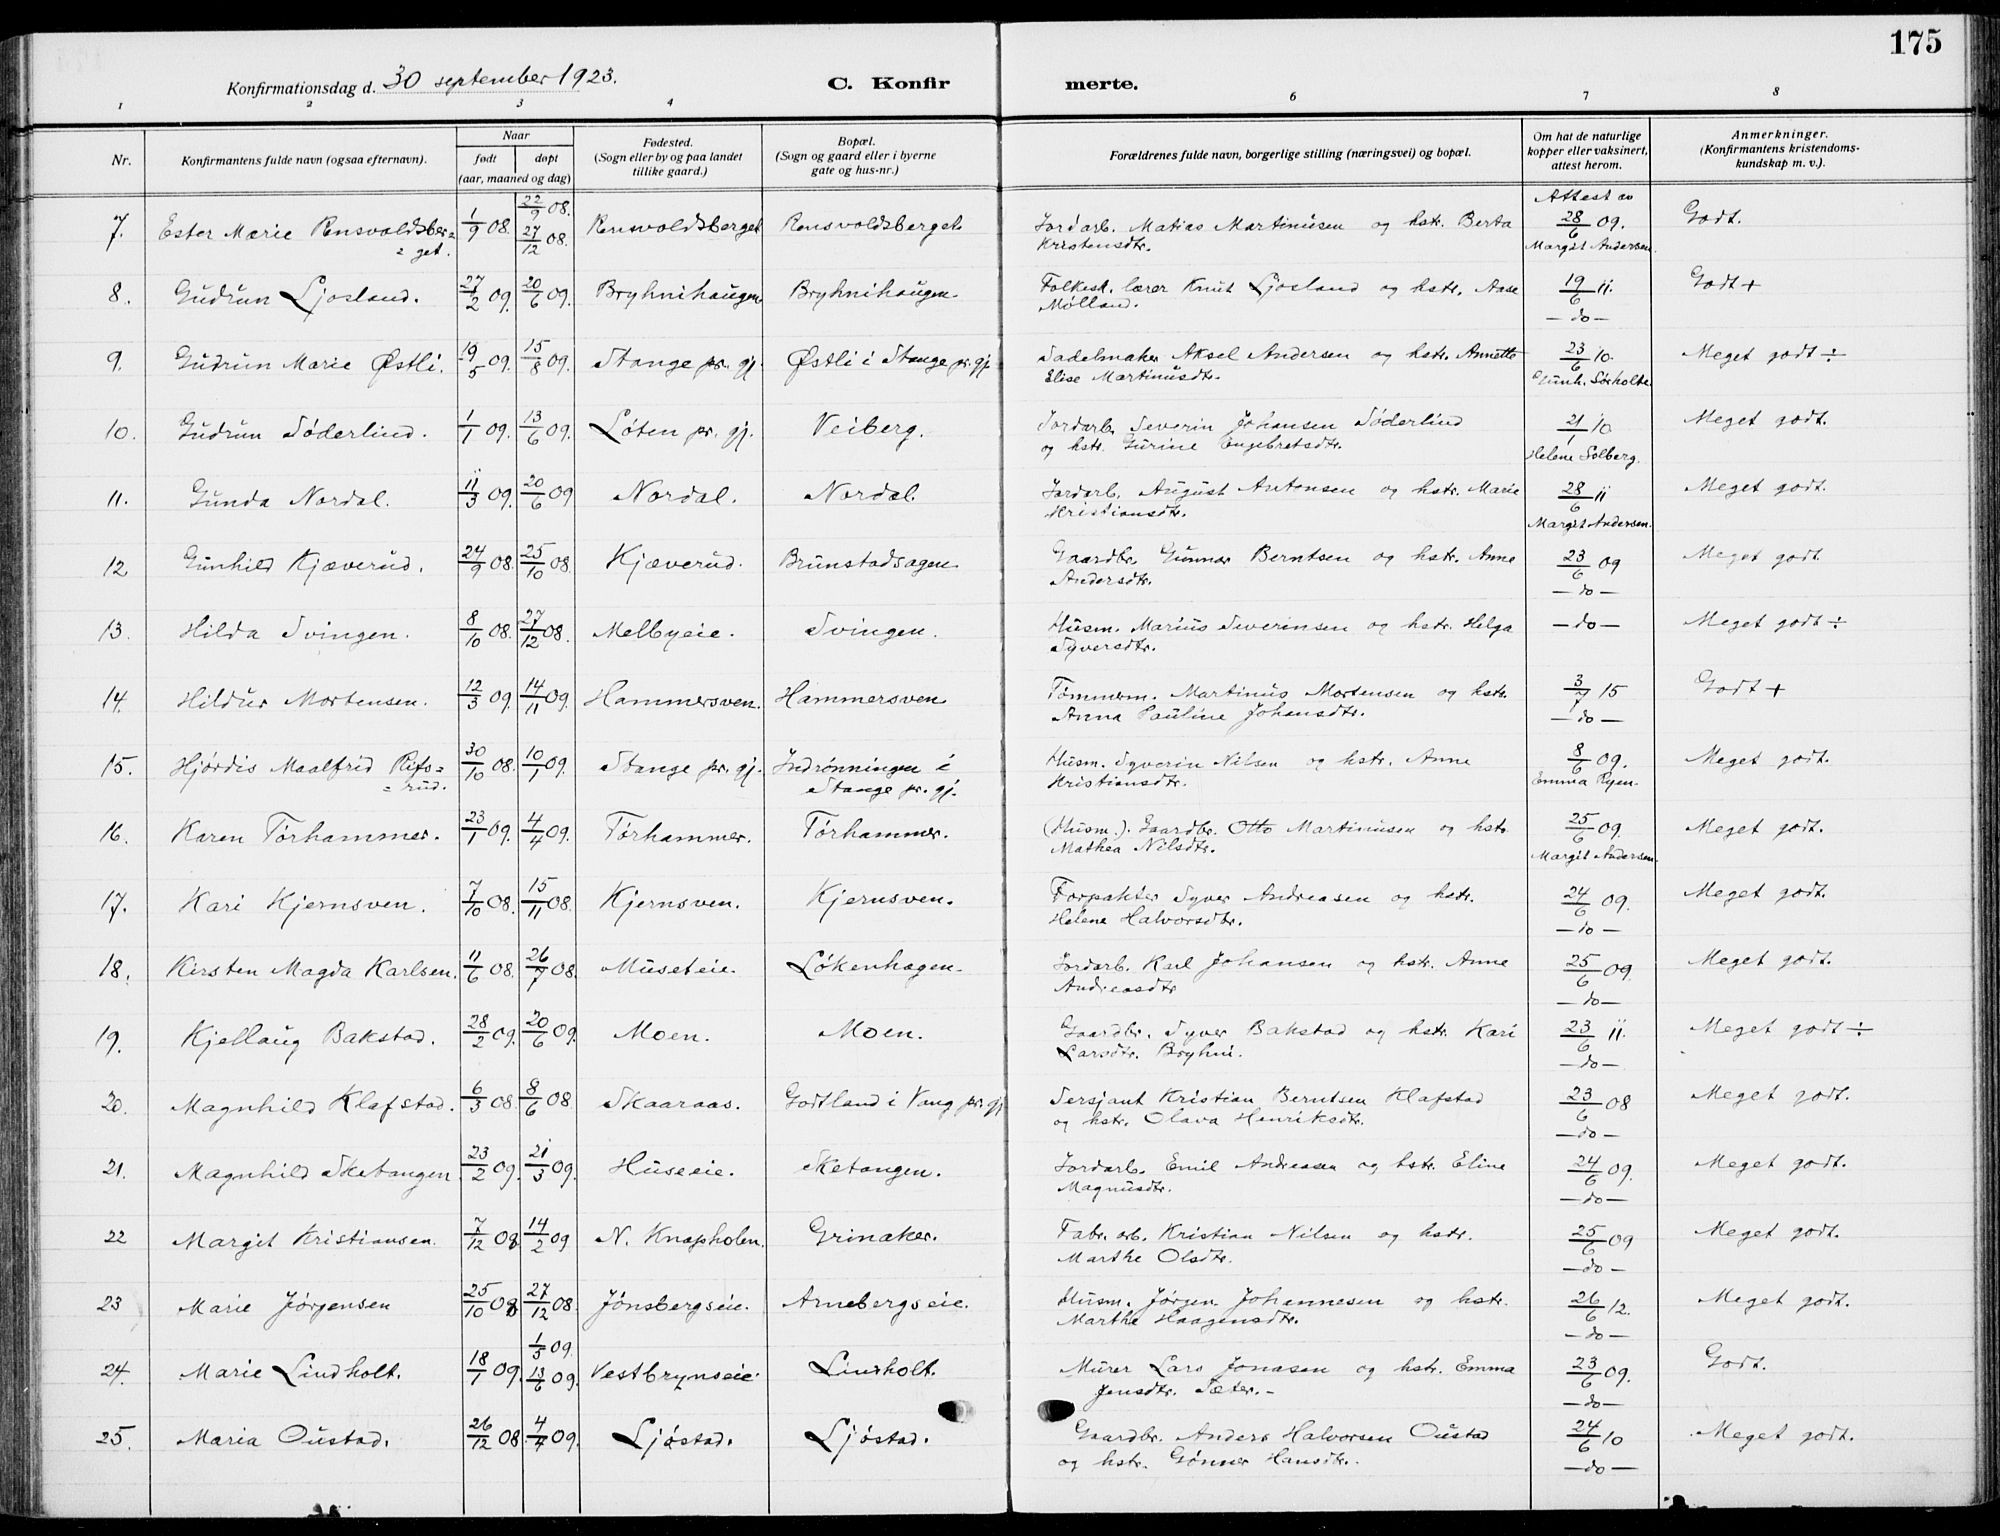 175
Konfirmationsdag d. 30 september 1923. C. Konfir merte.
1 2 3 4 6 7 8
Nr. Konfirmantens fulde navn (ogsaa efternavn). Naar født døpt (aar, maaned og dag) Fødested. (Sogn eller by og paa landet tillike gaard.) Bopæl. (Sogn og gaard eller i byerne gate og hus-nr.) Forældrenes fulde navn, borgerlige stilling (næringsvei) og bopæl. Om hat de naturlige kopper eller vaksinert, attest herom. Anmerkninger. (Konfirmantens kristendoms-kundskap m. v.).
7. Ester Marie Rensvoldsber= =get. 1/9 08. 22/9 08. 27/12 08. Rensvoldsberget Rensvoldsberget. Jordarb. Matias Martinusen og hstr. Berta Kristensdtr. Attest av 28/6 09. Margit Andersen. Godt.
8. Gudrun Ljosland. 27/2 09. 20/6 09. Bryhnihaugen. Bryhnihaugen. Folkesk. lærer Knut Ljosland og hstr. Aase Mølland. 19/6 11. —do— Godt +
9. Gudrun Marie Østli. 19/5 09. 15/8 09. Stange pr. gj. Østli i Stange pr. gj. Sadelmaker Aksel Andersen og hstr. Annette Elise Martinusdtr. 23/6 10. Gunh. Sørholte. Meget godt ÷
10. Gudrun Søderlind. 1/1 09. 13/6 09. Løten pr. gj. Veiberg. Jordarb. Severin Johansen Søderlind og hstr. Gurine Engebretsdtr. 21/1 10 Helene Solberg. Meget godt.
11. Gunda Nordal. 11/3 09. 20/6 09 Nordal. Nordal. Jordarb. August Antonsen og hstr. Marie Kristiansdtr. 28/6 11 Margit Andersen. Meget godt.
12 Gunhild Kjæverud. 24/9 08. 25/10 08. Kjæverud. Brunstadsagen. Gaardbr. Gunnar Berntsen og hstr. Anne Andersdtr. 23/6 09 —do— Meget godt
13. Hilda Svingen. 8/10 08. 27/12 08. Melbyeie. Svingen. Husm. Marius Severinsen og hstr. Helga Syversdtr. —do— Meget godt ÷
14. Hildur Mortensen. 12/3 09. 14/11 09. Hammersven. Hammersven. Tømmerm. Martinus Mortensen og hstr. Anna Pauline Johansdtr. 3/7 15 —do— Godt +
15. Hjørdis Maalfrid Rifs= =rud. 30/10 08. 10/1 09. Stange pr. gj. Indrønningen i Stange pr. gj. Husm. Syverin Nilsen og hstr. Anne Kristiansdtr. 8/6 09. Emma Ryen. Meget godt.
16. Karen Tørhammer. 23/1 09. 4/4 09. Tørhammer. Tørhammer. (Husm.). Gaardbr. Otto Martinusen og hstr. Mathea Nilsdtr. 25/6 09. Margit Andersen. Meget godt.
17. Kari Kjernsven. 7/10 08. 15/11 08. Kjernsven. Kjernsven. Forpakter Syver Andreasen og hstr. Helene Halvorsdtr. 24/6 09. —do— Meget godt.
18. Kirsten Magda Karlsen. 11/6 08. 26/7 08. Museteie. Løkenhagen. Jordarb. Karl Johansen og hstr. Anne Andreasdtr 25/6 09. —do— Meget godt.
19. Kjellaug Bakstad. 28/2 09. 20/6 09. Moen. Moen. Gaardbr. Syver Bakstad og hstr. Kari Larsdtr. Bryhni. 23/6 11. —do— Meget godt ÷
20. Magnhild Klafstad. 6/3 08. 8/6 08 Skaaraas. Godtland i Vang pr. gj Sersjant Kristian Berntsen Klafstad og hstr. Olava Henriksdtr. 23/6 08 —do— Meget godt.
21. Magnhild Sketangen 23/2 09. 21/3 09. Huseeie. Sketangen. Jordarb. Emil Andreasen og hstr. Eline Magnusdtr. 24/6 09. —do— Meget godt.
22 Margit Kristiansen. 7/12 08 14/2 09 N. Knapholen. Grinaker. Fabr. arb. Kristian Nilsen og hstr. Marthe Olsdtr. 25/6 09 —do— Meget godt.
23 Marie Jørgensen 25/10 08 27/12 08. Jønsbergseie. Arnebergseie. Husm. Jørgen Johannesen og hstr. Marthe Haagensdtr. 26/6 12. —do— Meget godt.
24. Marie Lindholt. 18/1 09. 1/5 09. 13/6 09. Vestbrynseie. Lindholt. Murer Lars Jonasen og hstr. Emma Jensdtr. Sæter.- 23/6 09. —do— Godt.
25. Maria Oustad. 26/12 08. 4/4 09. Ljøstad. Ljøstad. Gaardbr. Anders Halvorsen Oustad og hstr. Gønner Hansdtr. 24/6 10 —do— Meget godt.